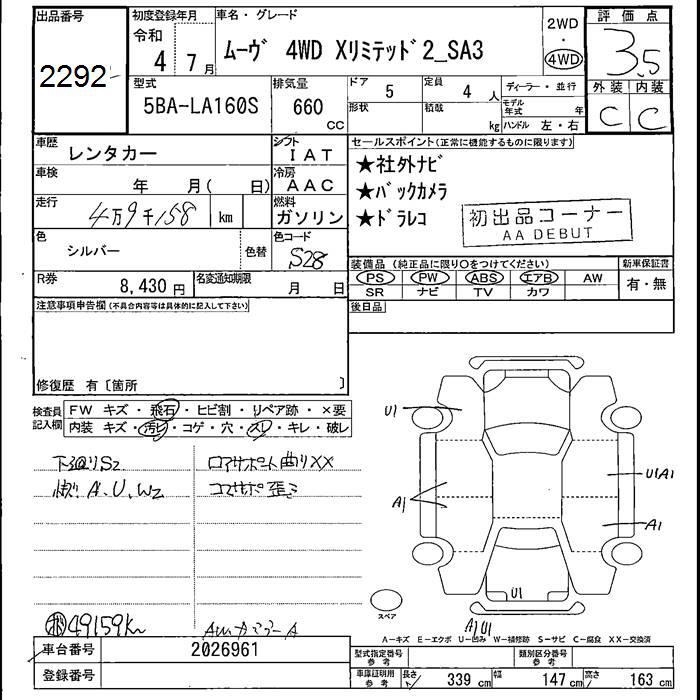 出品番号
2292
初度登録年月
令和
4年 7月
車名・グレード
ムーヴ 4WD Xリミテッド2_SA3
2WD
・
4WD
評価点
3.5
外装 内装
C C
型式
5BA-LA160S
排気量
660
cc
ドア 5
形状
定員 4 人
積載 kg
ディーラー・並行
モデル年式 年
ハンドル 左・右
車歴 レンタカー
シフト IAT
車検 年 月( 日)
冷房 AAC
走行 4万9千158 km
燃料 ガソリン
色 シルバー
色替
色コード S28
R券 8,430 円
名変通知期限 月 日
セールスポイント(正常に機能するものに限ります)
★社外ナビ
★バックカメラ
★ドラレコ
初出品コーナー
AA DEBUT
装備品(純正品に限り○をつけてください)
新車保証書
PS PW ABS エアB AW
SR ナビ TV カワ
有・無
後日品
注意事項申告欄(不具合内容等は具体的に記入して下さい)
修復歴 有〔箇所 〕
検査員記入欄
FW キズ・飛石・ヒビ割・リペア跡・×要
内装 キズ・汚レ・コゲ・穴・スレ・キレ・破レ
下廻りS2
A.U.W2
コアサポート曲りXX
コアサポ歪ミ
49159Km
A
U1
A1
U1A1
A1
U1
A1U1
スペア
A-キズ E-エクボ U-凹み W-補修跡 S-サビ C-腐食 XX-交換済
車台番号 2026961
登録番号
型式指定番号 参考
類別区分番号 参考
車庫証明用 参考
長さ 339 cm 幅 147 cm 高さ 163 cm